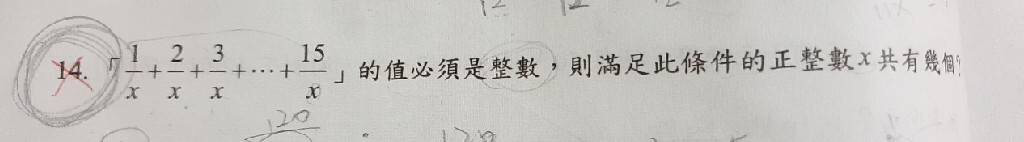 14.「1/x+2/x+3/x+⋯+15/x」的值必須是整數,則滿足此條件的正整數x共有幾個
120